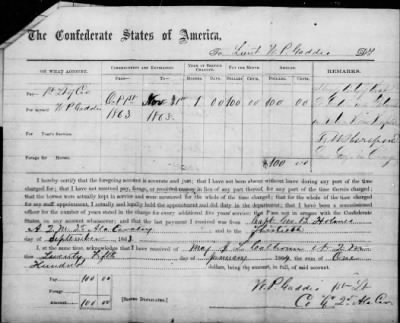 The Confederate States of America,
To Lieut W. P. Gaddis Dr.
ON WHAT ACCOUNT.
COMMENCEMENT AND EXPIRATION.
TERM OF SERVICE CHARGED.
PAY PER MONTH.
AMOUNT.
REMARKS.
FROM—
TO—
MONTHS
DAYS
DOLLARS
CENTS
DOLLARS
CENTS
Pay—
For myself W P Gaddis
Oct 1st
1863
Nov 31st
1863
1 00 100 00 100 00
For Years' Service
Forage for Horses
$100 00
I hereby certify that the foregoing account is accurate and just; that I have not been absent without leave during any part of the time
charged for; that I have not received pay, forage, or received money in lieu of any part thereof, for any part of the time therein charged;
that the horses were actually kept in service and were mounted for the whole of the time charged; that for the whole of the time charged
for my staff appointment, I actually and legally held the appointment and did duty in the department; that I have been a commissioned
officer for the number of years stated in the charge for every additional five years' service; that I am not in arrears with the Confederate
States, on any account whatsoever; and that the last payment I received was from Capt Geo B. Holmes
A Q M 2d Ala Cavalry and to the Thirtieth
day of September 1863
I, at the same time, acknowledge that I have received of Maj Calhoun Q M
this Twenty Fifth day of January 1864 the sum of One
Hundred dollars, being the amount, in full, of said account.
Pay 100 00
Forage
Amount 100 00
[SIGNED DUPLICATES.]
W. P. Gaddis 1st Lt
2d Ala Cav